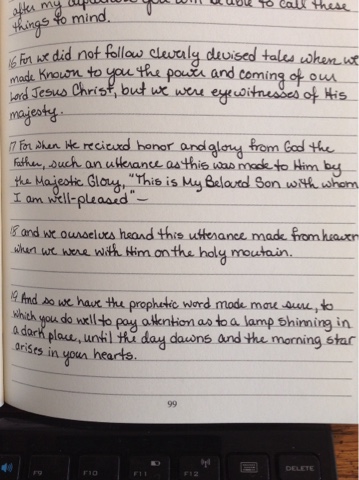 after my departure you will be able to call these
things to mind.
16 For we did not follow cleverly devised tales when we
made known to you the power and coming of our
Lord Jesus Christ, but we were eyewitnesses of His
majesty.
17 For when He recieved honor and glory from God the
Father, such an utterance as this was made to Him by
the Majestic Glory, "This is My Beloved Son with whom
I am well-pleased"—
18 and we ourselves heard this utterance made from heaven
when we were with Him on the holy moutain.
19 And so we have the prophetic word made more sure, to
which you do well to pay attention as to a lamp shinning in
a dark place, until the day dawns and the morning star
arises in your hearts.
99
F9 F10 F11 F12 DELETE